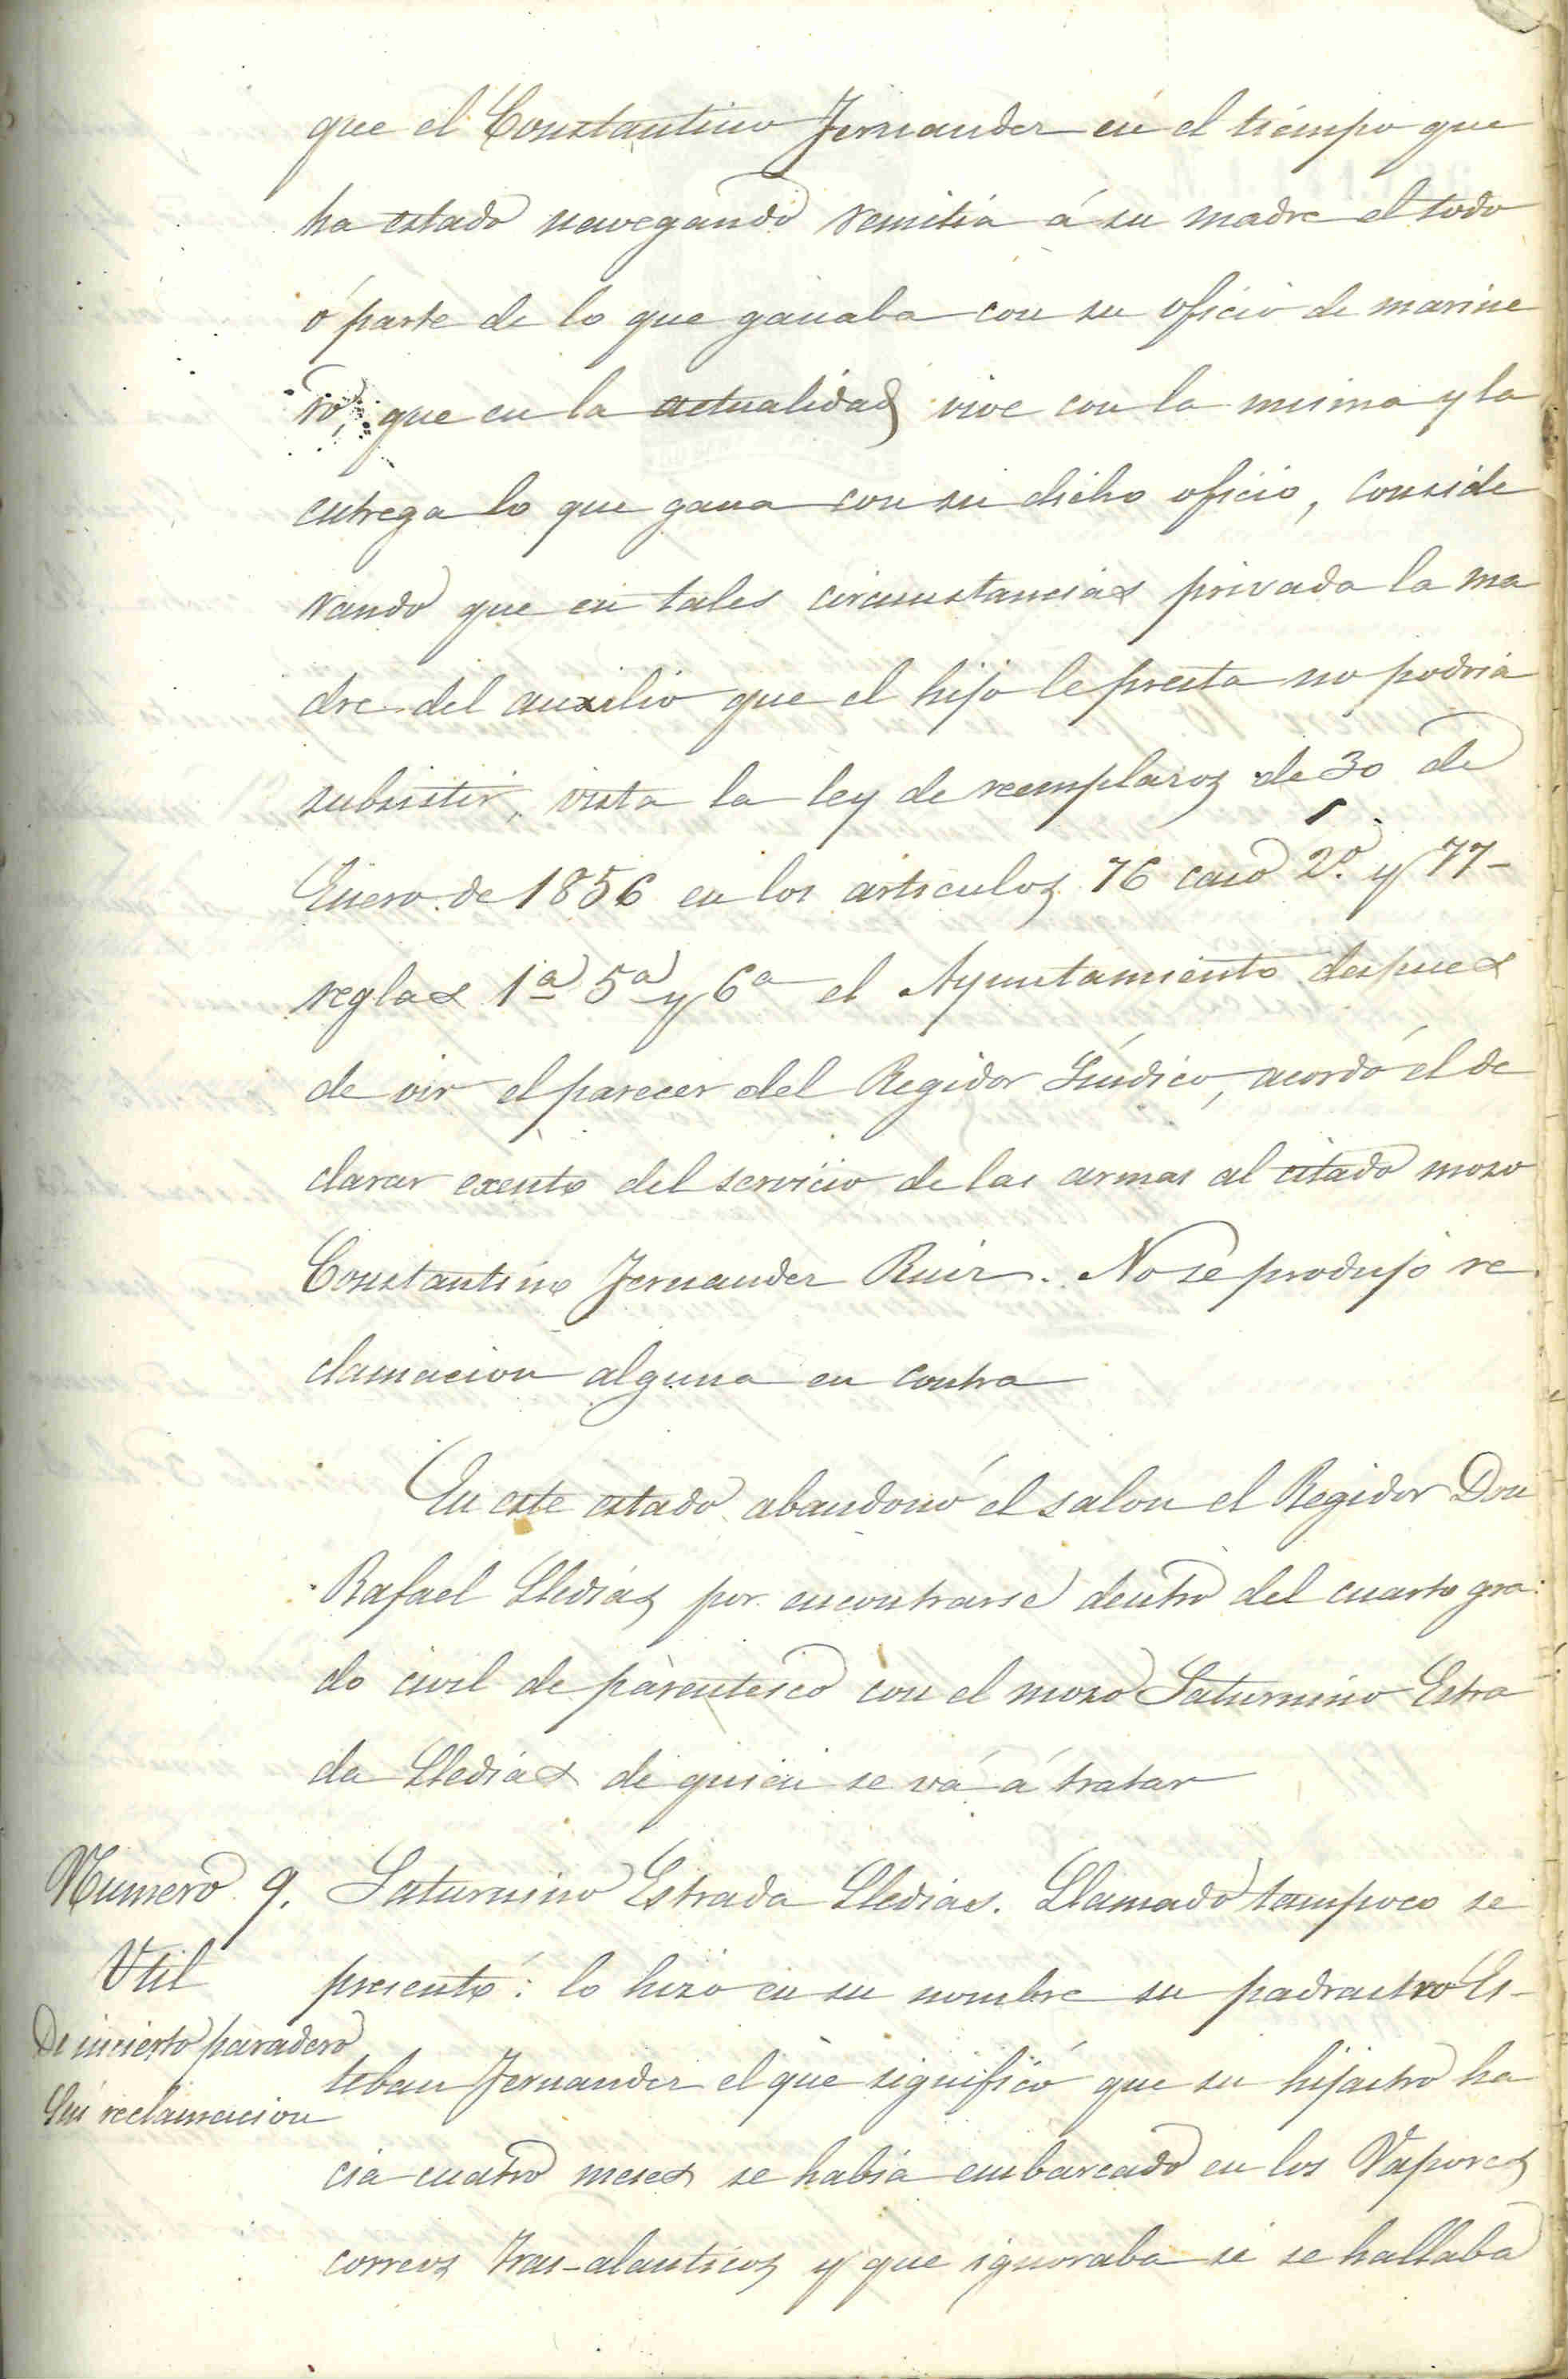 que el Constantino Fernandez en el tiempo que
ha estado navegando remitia á su madre el todo
ó parte de lo que ganaba con su oficio de marine
ro, que en la actualidad vive con la misma y la
entrega lo que gana con su dicho oficio, conside
rando que en tales circunstancias privada la ma
dre del auxilio que el hijo le presta no podria
subsistir, vista la ley de reemplazos de 30 de
Enero de 1856 en los articulos 76 caso 2º y 77-
reglas 1ª 5ª y 6ª el Ayuntamiento despues
de oir el parecer del Regidor Síndico, acordó el de
clarar exento del servicio de las armas al citado mozo
Constantino Fernandez Ruiz. No se produjo re
clamacion alguna en contra
En este estado abandonó el salon el Regidor Don
Rafael Lledias por encontrarse dentro del cuarto gra
do civil de parentesco con el mozo Saturnino Estra
da Lledias de quien se vá á tratar
Numero 9. Saturnino Estrada Lledias. Llamado tampoco se
Util presentó: lo hizo en su nombre su padrastro Es-
De incierto paradero
teban Fernandez el que significó que su hijastro ha
Sin reclamacion
cia cuatro meses se habia embarcado en los Vapores
correos tras-alanticos y que ignoraba si se hallaba